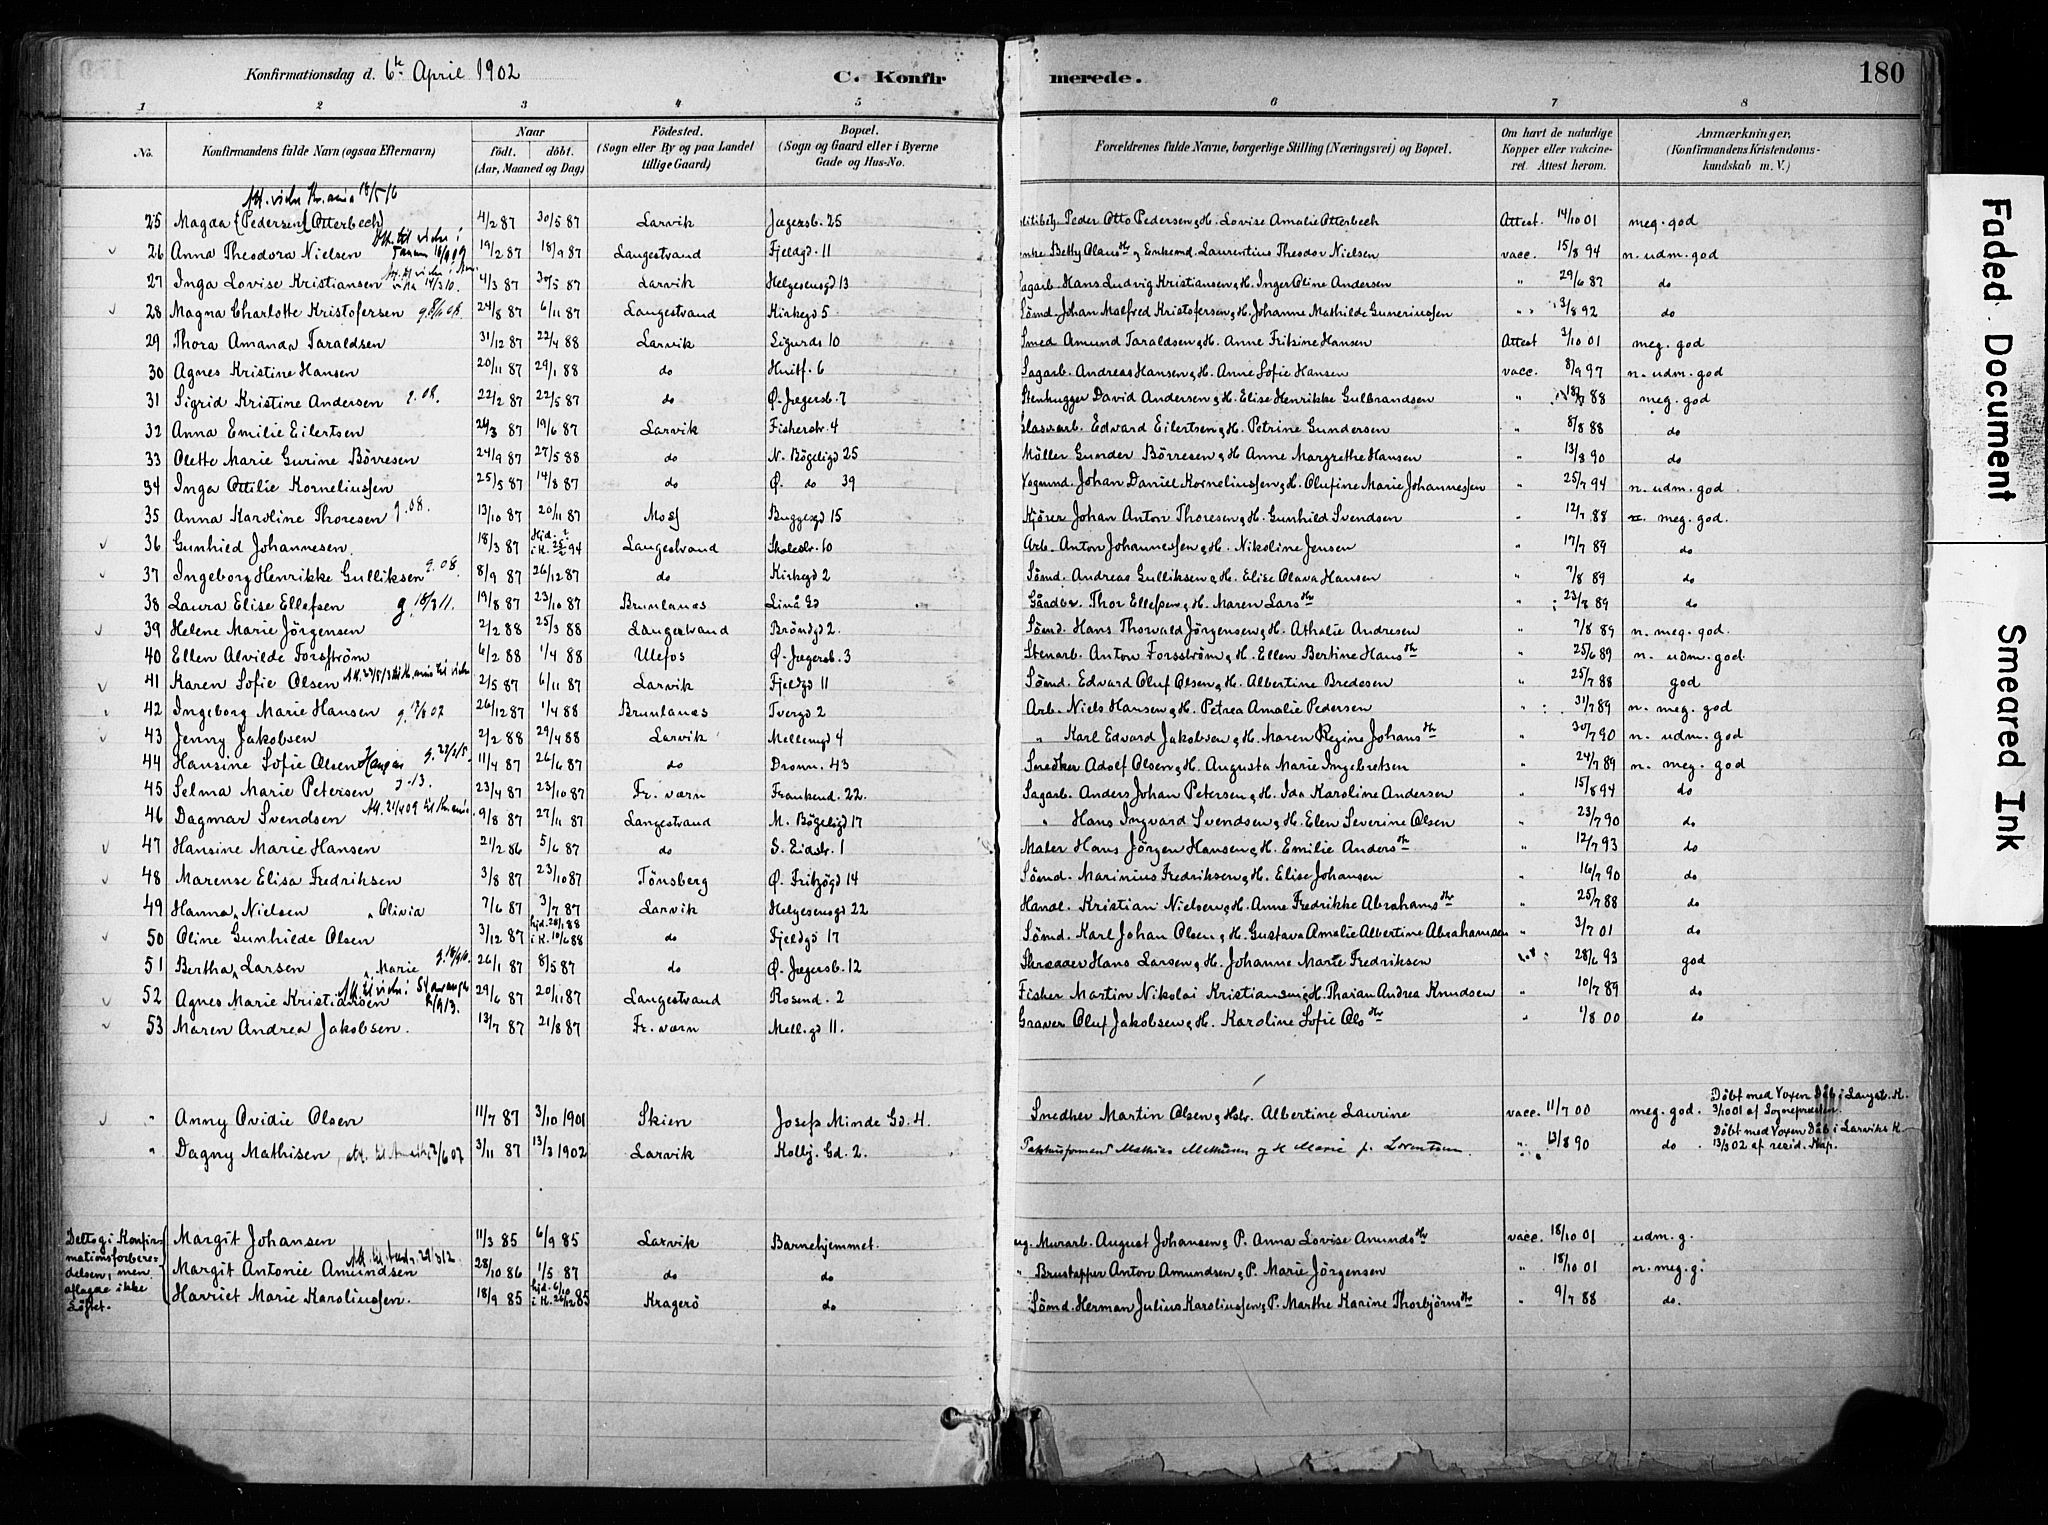 Konfirmationsdag d. 6te April 1902 C. Konfirmerede. 180
1 2 3 4 5 6 7 8
No. Konfirmandens fulde Navn (ogsaa Efternavn) Naar født. døbt. (Aar, Maaned og Dag) Fødested. (Sogn eller By og paa Landet tillige Gaard) Bopæl. (Sogn og Gaard eller i Byerne Gade og Hus-No. Forældrenes fulde Navne, borgerlige Stilling (Næringsvei) og Bopæl. Om havt de naturlige Kopper eller vakcineret. Attest herom. Anmærkninger, (Konfirmandens Kristendomskundskab m. V.)
25 Magda (Pedersen) Otterbech 4/2 87 30/5 87 Larvik Jægersb. 25 Peder Otto Pedersen & H. Lovise Amalie Otterbech Attest 14/10 01 meg. god
26 Anna Theodora Nielsen 19/2 87 18/9 87 Langestrand Fjeldgd. 11 Betty Olausdtr & Enkemd. Laurentius Theodor Nielsen vacc. 15/8 94 n. udm. god
27 Inga Lovise Kristiansen 4/3 87 30/5 87 Larvik Helgesensgd 13 Sagarb. Hans Ludvig Kristiansen & H. Inger Oline Andersen " 29/6 87 do
28 Magna Charlotte Kristofersen 24/8 87 6/11 87 Langestrand Kirkegd 5 Sömd. Johan Malfred Kristofersen & H. Johanne Mathilde Guneriussen " 3/8 92 do
29 Thora Amanda Taraldsen 31/12 87 22/4 88 Larvik Sigurds 10 Smed Amund Taraldsen & H. Anne Fritzine Hansen Attest 3/10 01 meg. god
30 Agnes Kristine Hansen 20/11 87 29/1 88 do Huitf. 6 Sagarb. Andreas Hansen & H. Anne Sofie Hansen vacc. 8/9 97 n. udm. god
31 Sigrid Kristine Andersen g. 08. 22/2 87 22/5 87 do Ø. Jægersb. 7 Stenhugger David Andersen & H. Elise Henrikke Gulbrandsen " 88 meg. god
32 Anna Emilie Eilertsen 24/3 87 19/6 87 Larvik Fisherstr. 4 Glasarb. Edvard Eilertsen & H. Petrine Gundersen " 8/8 88 do
33 Olette Marie Gurine Börresen 24/9 87 27/5 88 do N. Bögeligd 25 Möller Gunder Börresen & H. Anne Margrethe Hansen " 13/8 90 do
34 Inga Ottilie Korneliussen 25/5 87 14/8 87 do Ø. do 39 Vogmnd. Johan Daniel Korneliussen & H. Olufine Marie Johannessen " 25/7 94 n. udm. god
35 Anna Karoline Thoresen g. 08. 13/10 87 20/11 87 Moss Buggesgd 15 Kjörer Johan Anton Thoresen & H. Gunhild Svendsen " 12/7 88 meg. god.
36 Gunhied Johannesen. 18/3 87 Hjd. ? i K. 25/2 94 Langestrand Skolestr. 10 Arb. Anton Johannessen & H. Nikoline Jensen " 17/7 89 do
37 Ingeborg Henrikke Gulliksen g. 08. 8/9 87 26/12 87 do Kirkegd 2 Sömd. Andreas Gulliksen & H. Elise Olava Hansen " 7/8 89 do
38 Laura Elise Ellefsen g. 18/3 11. 19/8 87 23/10 87 Brunlanæs Linå Gd Gaardbr. Thor Ellefsen & H. Maren Larsdtr " 23/8 89 do
39 Helene Marie Jörgensen 2/2 88 25/3 88 Langestrand Bröndgd 2. Sömd. Hans Thorvald Jörgensen & H. Athalie Andresen " 7/8 89 n. meg. god.
40 Ellen Alvilde Forsström 6/2 88 1/4 88 Ulefos Ø. Jægersb. 3 Stenarb. Anton Forsström & H. Ellen Bertine Hansdtr " 25/6 89 n. udm. god
41 Karen Sofie Olsen 2/5 87 6/11 87 Larvik Fjeldgd 11 Sömd. Edvard Oluf Olsen & H. Albertine Bredesen " 25/7 88 god
42 Ingeborg Marie Hansen 26/12 87 1/4 88 Brunlanæs Tvergd 2 Arb. Niels Hansen & H. Petrea Amalie Pedersen " 31/7 89 n. meg. god
43 Jenny Jakobsen 2/2 88 29/4 88 Larvik Mellemgd 4 " Karl Edvard Jakobsen & H. Maren Regine Johansdtr " 30/7 90 n. udm. god
44 Hansine Sofie Olsen 11/4 87 26/6 87 do Dronn. 43 Snedker Adolf Olsen & H. Augusta Marie Ingebretsen " 24/7 89 n. meg. god
45 Selma Marie Petersen g. 13. 23/4 87 23/10 87 Fr. værn Frankend. 22. Sagarb. Anders Johan Petersen & H. Ida Karoline Andersen " 15/8 94 do
46 Dagmar Svendsen 9/8 87 27/11 87 Langestrand M. Bögeligd 17 " Hans Ingvard Svendsen & H. Elen Severine Olsen " 23/7 90 do
47 Hansine Marie Hansen 21/2 86 5/6 87 do S. Eidstr. 1 Maler Hans Jörgen Hansen & H. Emilie Andersdtr " 12/7 93 do
48 Marense Elisa Fredriksen 3/8 87 23/10 87 Tönsberg Ø. Fritzögd 14 Sömd. Marinius Fredriksen & H. Elise Johansen " 16/7 90 do
49 Hanna Nielsen Olivia 7/6 87 3/7 87 Larvik Helgesensgd 22 Handl. Kristian Nielsen & H. Anne Fredrikke Abrahamsdtr " 25/7 88 do
50 Oline Gunhilde Olsen 3/12 87 hjd. 28/1 88 i K. 10/6 88 do Fjeldgd 17 Sömd. Karl Johan Olsen & H. Gustava Amalie Albertine Abrahamsen " 3/7 01 do
51 Bertha Larsen Marie 26/1 87 8/5 87 do Ø. Jægersb. 12 Skrædder Hans Larsen & H. Johanne Marie Fredriksen 28/6 93 god
52 Agnes Marie Kristiansen 29/6 87 20/11 87 Langestrand Rosend. 2 Fisher Martin Nikolai Kristiansen & H. Tharan Andrea Knudsen " 10/7 89 do
53 Maren Andrea Jakobsen. 13/7 87 21/8 87 Fr. værn Mell. gd 11. Graver Oluf Jakobsen & H. Karoline Sofie Olsdtr " 1/8 00 do
" Anny Ovidie Olsen 11/7 87 3/10 1901 Skien Josefs Minde Gd. 4. Snedker Martin Olsen & Hstr. Albertine Laurine vacc. 11/7 00 meg. god. Döbt med Voxen Dåb i Langstr. K. 3/10 01 af Sognepræsten.
" Dagny Mathisen 3/11 87 13/3 1902 Larvik Kolbj. Gd. 2. Pakhusformand Mathias Mathisen og H. Marie f. Lorentzen. " 13/8 90 do Döbt med Voxen Dåb i Larviks K 13/3 02 af resid. Kap.
Deltog i Konfirmationsforberedelsen, men aflagde ikke Löftet.
Margit Johansen 11/3 85 6/9 85 Larvik Barnehjemmet. Murarb. August Johansen & P. Anna Lovise Amundsdtr vacc. 18/10 01 udm. g.
Margit Antonie Amundsen 28/10 86 1/5 87 do do " Brustapper Anton Amundsen & P. Marie Jörgensen " 18/10 01 n. meg. g.
Harriet Marie Karoliussen. 18/9 85 hjd. 6/10 i K. 26/12 85 Kragerö do Sömd. Herman Julius Karoliussen & P. Marthe Karine Thorbjörnsdtr " 9/7 88 do.
Faded Document
Smeared Ink